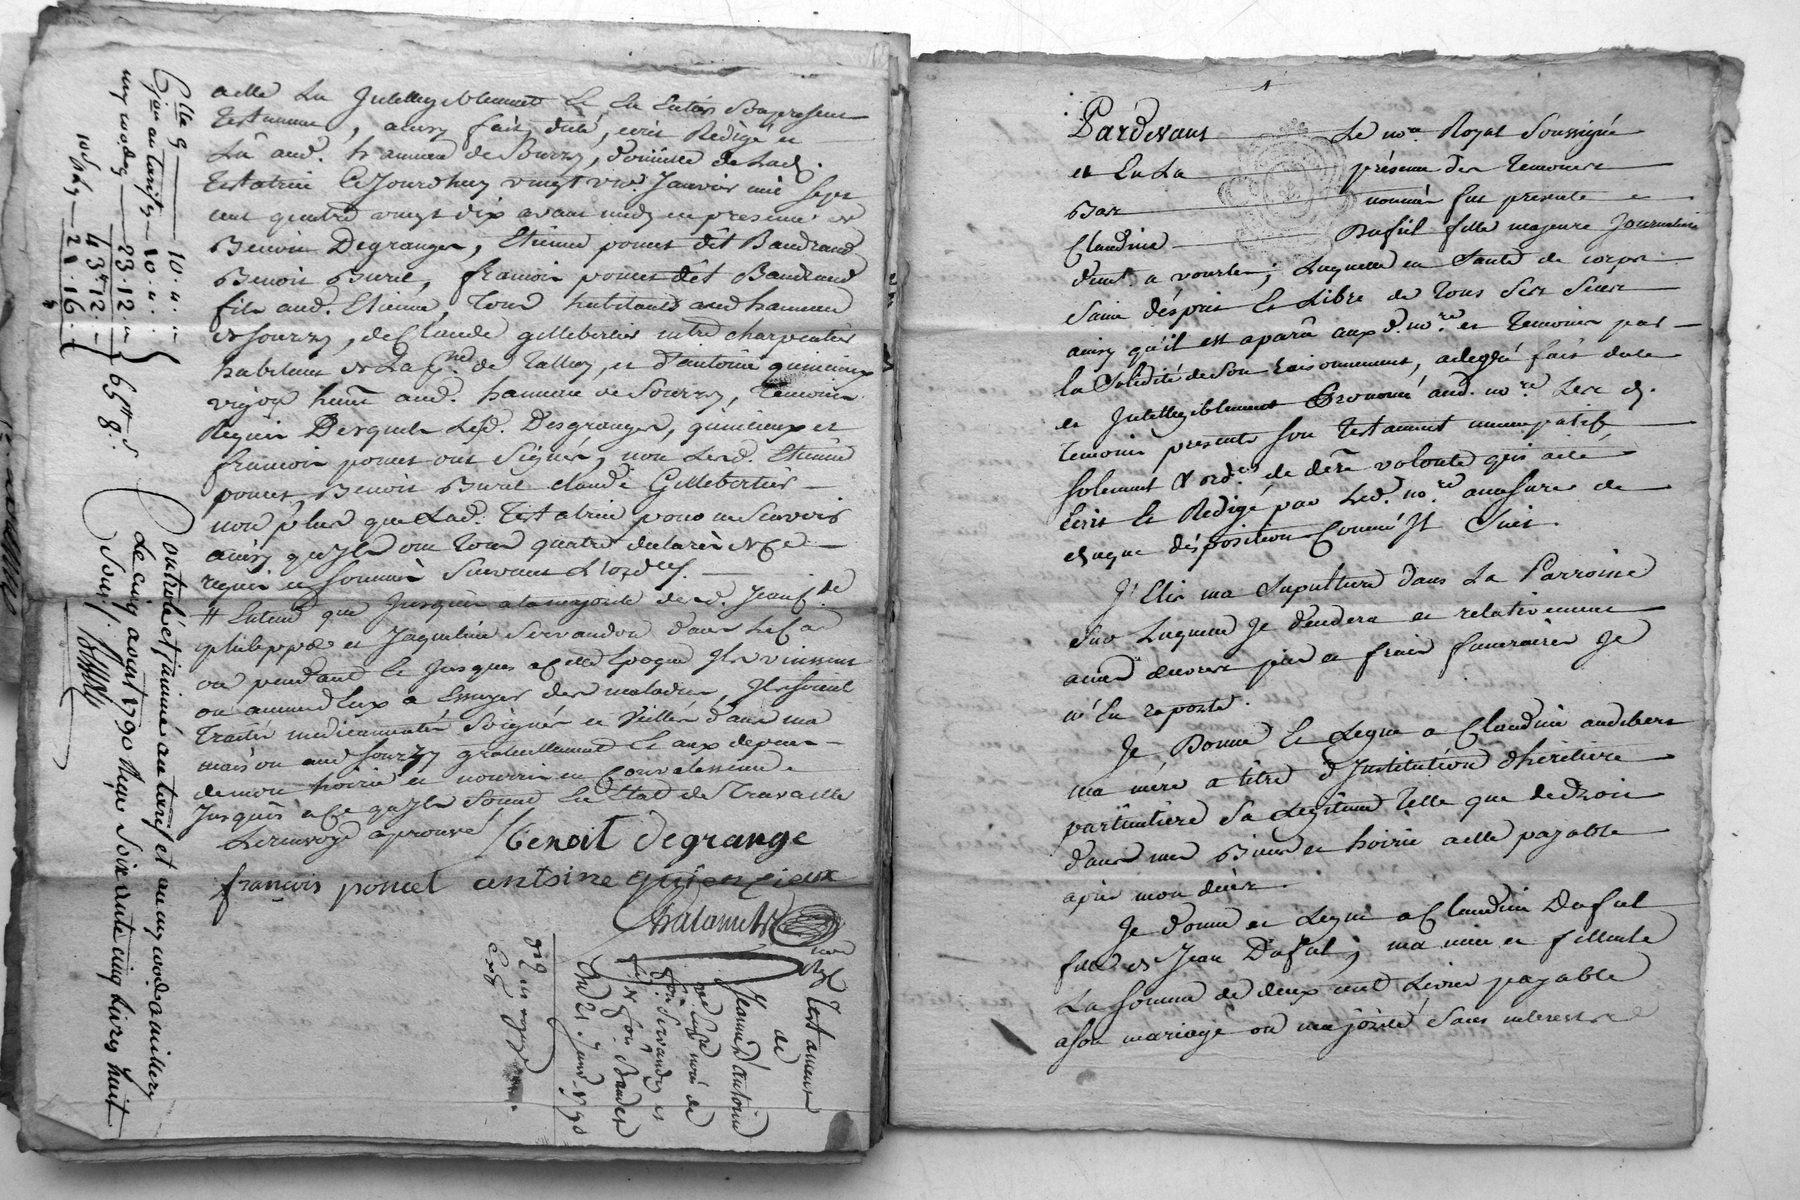 aelle Lu Intelligiblement Et En Entier Son present
Testament, ainsy fait, dicté, ecrit Redigé et
Lu aud. hameau de Sourzy, domicile de Lad.
Testatrice Cejourdhuy vingt un Janvier mil Sept
cent quatre vingt dix avant midy en presence de
Benoit Degranger, Etienne poncet dit Baudrand
Benoit Burel, francois poncet dit Baudrand
fils aud. Etienne, Tous habitants aud hameau
de Sourzy, de Claude Gillebertier mtre charpentier
habitant de La de Talluy, et d'antoine quincieux
vigon aud. hameau de Sourzy, Temoins
Requis Desquels Lesd. Desgranger, quincieux et
francois poncet ont Signés, non Lesd. Etienne
poncet, Benoit Burel claude Gillebertier
non plus que Lad. Testatrice pour ne Scavoir
ainsy qu'ils ont Tous quatre declarés de Ce
requis et Sommés Suivant L'ord.
# Entend que Jusques a la majorité desd. Jean
philippe et Jaqueline Servandon dans Le Cas
ou pendant Et Jusques a Cette Epoque Ils vinssent
ou aucun d'Eux a Essuyer des maladies, Ils soient
Traités medicamentés Soignés et Veillés dans ma
maison aud Sourzy gratuitement Et aux depens
de mon hoirie et nourris en Convalessence
Jusqu'à Ce qu'ils Soient En Etat de Travaille
Le renvoy aprouvé
Benoit degrange
françois poncet antoine quienzieux
Chatanet
Testament
de
Jeanne d'antoine
ve Servandon et
du 21. Janv. 1790
Clle 9 10
au tarif 10
my wodey 23 12
43 12
21 16
65 tt 8 s
Controlé et insinué au tarif et au my wode a millery
Le cinq avout 1790 Reçu Soixante cinq livres huit
Sous
1
Pardevant Le nore Royal Soussigné
et En La présence des Temoins
Bas nommés fut presente
Claudine Dufiel fille majeure Journaliere
demt a vourles, Laquelle en Santé de corps
Saine d'Esprit Et Libre de Tous Ses Sens
ainsy qu'il est aparu aux d. nore et Temoins par
la Solidité de Son Raisonnement, a elle fait dicté
et Intelligiblement Prononcé aud. nore Et es d.
Temoins presents Son Testament nuncupatif
Solemnel & ord. de dere volonté qui a eté
Ecrit Et Redigé par Led. nore a mesure de
chaque disposition Comme Il Suit.
J'Elis ma Sepulture dans La Parroisse
Sur Laquelle Je decedera et relativement
a mes oeuvres pies et frais funeraires Je
m'En raporte.
Je Donne Et Legue a Claudine audibert
ma mère a titre d'Institution d'heritiere
particuliere Sa Legitime Telle que de droit
dans mes Biens et hoirie aelle payable
après mon decés.
Je donne et Legue a Claudine Dufiel
fille de Jean Dufiel, ma niece et fillieule
La Somme de deux cent Livres payable
a Son mariage ou majorité Sans interest